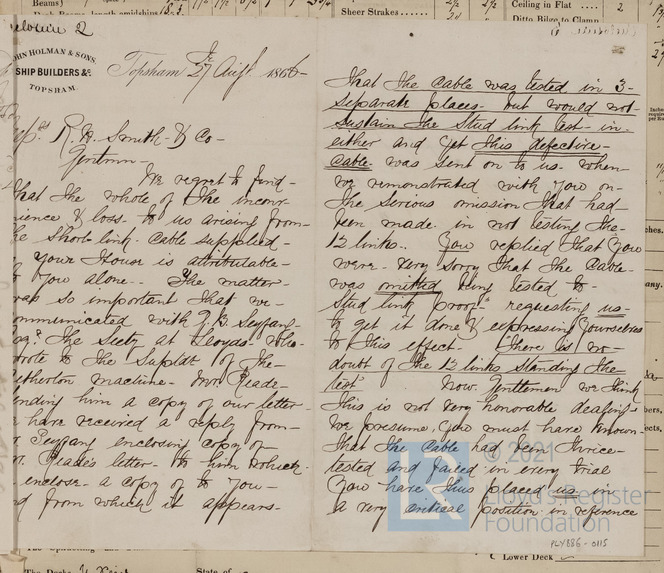 Beams)
Sheer Strakes
Ceiling in Flat
2
Ditto Bilge to Clamp
closure 2
JOHN HOLMAN & SONS,
SHIP BUILDERS &c.
TOPSHAM.
Topsham 27 Augt 186
R. H. Smith & Co -
Gentmn -
We regret to find -
that the whole of the incon-
ience & loss to us arising from -
he Short link Cable supplied -
Your House is attributable -
to You alone - The matter -
was so important that we -
ommunicated with Seyfang
The Secty at Lloyds who -
wrote to the Supdt of the -
etherton machine - Mr Reade -
ending him a copy of our letter
have received a reply from -
Seyfang enclosing copy of
Mr. Reade's letter - to him which
enclose - a copy of to You -
d from which it appears -
that the Cable was tested in 3 -
separate places - but would not
sustain the Stud link test - in -
either and yet this defective -
Cable was sent on to us. When
we remonstrated with You on -
the serious omission that had
been made in not testing the -
12 links. You replied that You
were very sorry that the Cable -
was omitted being tested to -
Stud link proof - requesting us -
to get it done & expressing Yourselves
to this effect. "There is no -
doubt of the 12 links standing the -
test" Now Gentlemen we think
this is not very honorable dealing -
we presume You must have known -
that the Cable had been thrice -
tested and failed in every trial
You have thus placed us in -
a very critical position in reference
© 2021
Lloyd's Register
Foundation
LR
PLY886-0115
Lower Deck
State of